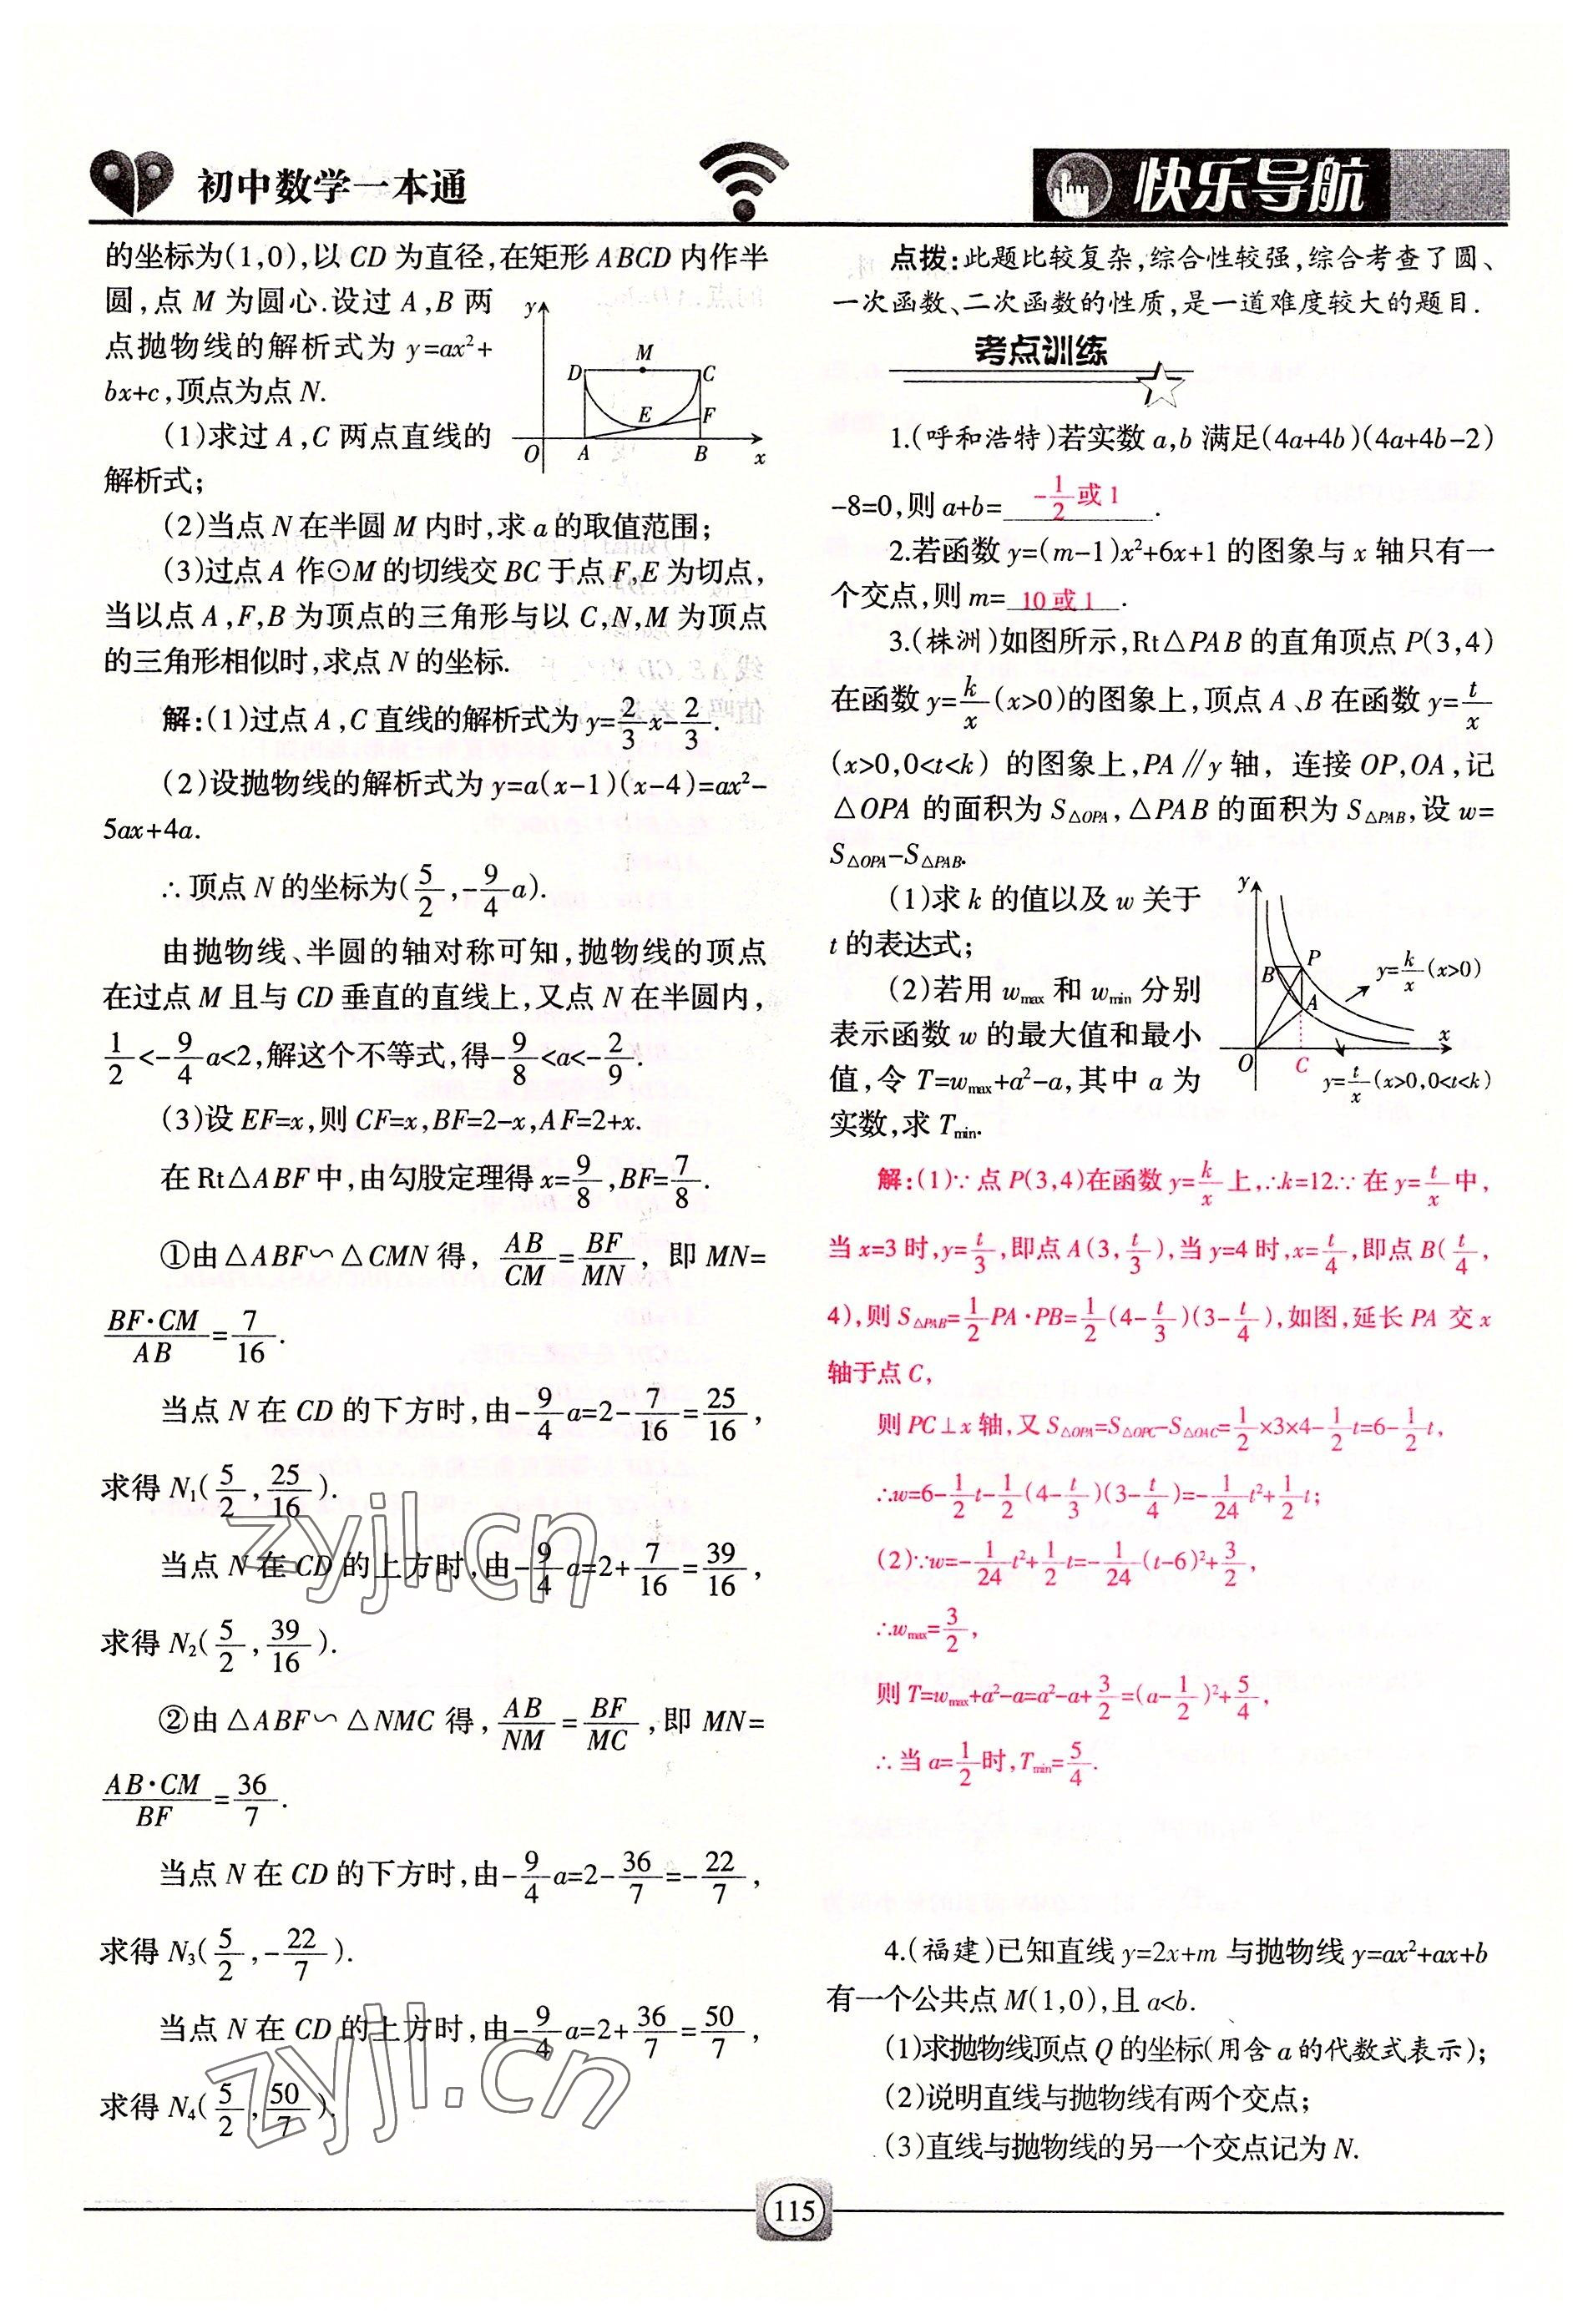 初中数学一本通
快乐导航
的坐标为(1,0),以 CD 为直径,在矩形 ABCD 内作半
圆,点 M 为圆心.设过 A,B 两
点抛物线的解析式为 y=ax²+
bx+c,顶点为点 N.
(1)求过 A,C 两点直线的
解析式;
y
M
D
C
E
F
O
A
B
x
(2)当点 N 在半圆 M 内时,求 a 的取值范围;
(3)过点 A 作⊙M 的切线交 BC 于点 F,E 为切点,
当以点 A,F,B 为顶点的三角形与以 C,N,M 为顶点
的三角形相似时,求点 N 的坐标.
解:(1)过点 A,C 直线的解析式为 y=2/3x-2/3.
(2)设抛物线的解析式为 y=a(x-1)(x-4)=ax²-
5ax+4a.
∴顶点 N 的坐标为(5/2,-9/4a).
由抛物线、半圆的轴对称可知,抛物线的顶点
在过点 M 且与 CD 垂直的直线上,又点 N 在半圆内,
1/2<-9/4a<2,解这个不等式,得-9/8<a<-2/9.
(3)设 EF=x,则 CF=x,BF=2-x,AF=2+x.
在 Rt△ABF 中,由勾股定理得 x=9/8,BF=7/8.
①由△ABF∽△CMN 得, AB/CM=BF/MN, 即 MN=
BF·CM/AB=7/16.
当点 N 在 CD 的下方时,由-9/4a=2-7/16=25/16,
求得 N₁(5/2,25/16).
当点 N 在 CD 的上方时,由-9/4a=2+7/16=39/16,
求得 N₂(5/2,39/16).
②由△ABF∽△NMC 得,AB/NM=BF/MC,即 MN=
AB·CM/BF=36/7.
当点 N 在 CD 的下方时,由-9/4a=2-36/7=-22/7,
求得 N₃(5/2,-22/7).
当点 N 在 CD 的上方时,由-9/4a=2+36/7=50/7,
求得 N₄(5/2,50/7).
zyjl.cn
zyjl.cn
点拨:此题比较复杂,综合性较强,综合考查了圆、
一次函数、二次函数的性质,是一道难度较大的题目.
考点训练
1.(呼和浩特)若实数 a,b 满足(4a+4b)(4a+4b-2)
-8=0,则 a+b= -1/2或 1 .
2.若函数 y=(m-1)x²+6x+1 的图象与 x 轴只有一
个交点,则 m= 10 或 1 .
3.(株洲)如图所示,Rt△PAB 的直角顶点 P(3,4)
在函数 y=k/x(x>0)的图象上,顶点 A、B 在函数 y=t/x
(x>0,0<t<k) 的图象上,PA∥y 轴, 连接 OP,OA,记
△OPA 的面积为 S△OPA,△PAB 的面积为 S△PAB,设 w=
S△OPA-S△PAB.
(1)求 k 的值以及 w 关于
t 的表达式;
(2)若用 wmax 和 wmin 分别
表示函数 w 的最大值和最小
值,令 T=wmax+a²-a,其中 a 为
实数,求 Tmin.
y
B
P
A
y=k/x(x>0)
x
O
C
y=t/x(x>0,0<t<k)
解:(1)∵点 P(3,4)在函数 y=k/x上,∴k=12∵在 y=t/x中,
当 x=3 时,y=t/3,即点 A(3,t/3),当 y=4 时,x=t/4,即点 B(t/4,
4),则 S△PAB=1/2PA·PB=1/2(4-t/3)(3-t/4),如图,延长 PA 交 x
轴于点 C,
则 PC⊥x 轴,又 S△OPA=S△OPC-S△OAC=1/2×3×4-1/2t=6-1/2t,
∴w=6-1/2t-1/2(4-t/3)(3-t/4)=-1/24t²+1/2t;
(2)∵w=-1/24t²+1/2t=-1/24(t-6)²+3/2,
∴wmax=3/2,
则 T=wmax+a²-a=a²-a+3/2=(a-1/2)²+5/4,
∴当 a=1/2时,Tmin=5/4.
4.(福建)已知直线 y=2x+m 与抛物线 y=ax²+ax+b
有一个公共点 M(1,0),且 a<b.
(1)求抛物线顶点 Q 的坐标(用含 a 的代数式表示);
(2)说明直线与抛物线有两个交点;
(3)直线与抛物线的另一个交点记为 N.
115